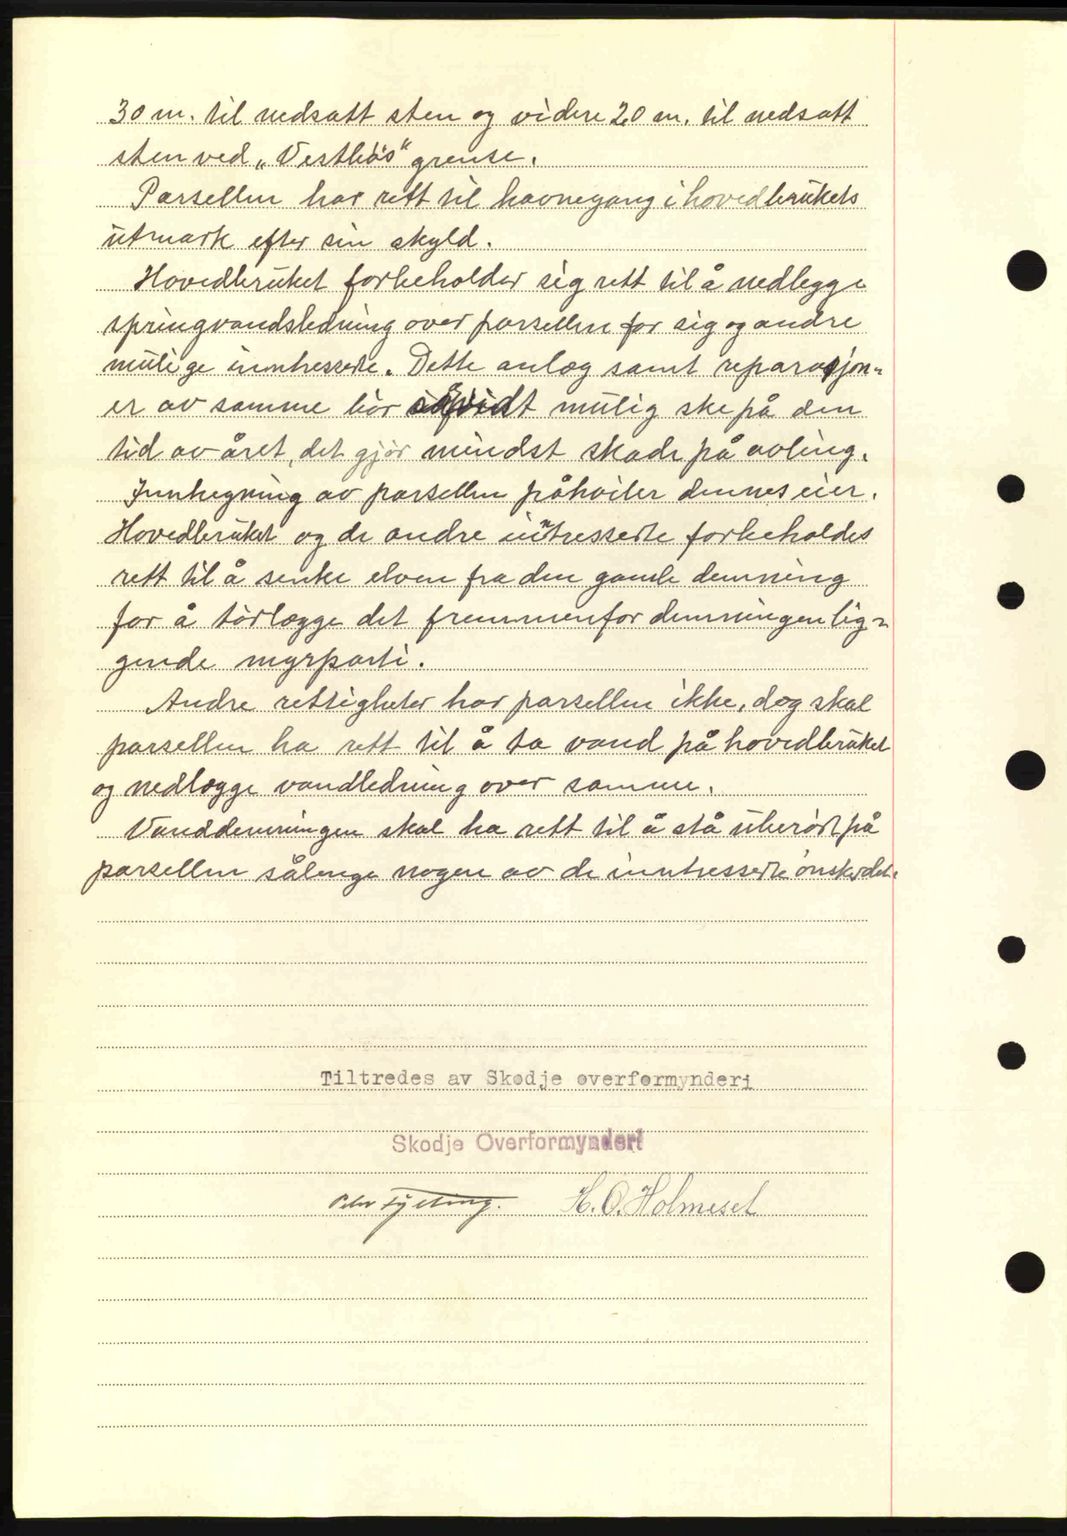 30 m. til nedsatt sten og videre 20 m. til nedsatt
sten ved „Vestbøs“ grense.
Parsellen har rett til havnegang i hovedbrukets
utmark efter sin skyld.
Hovedbruket forbeholder sig rett til å nedlegge
springvandsledning over parsellen for sig og andre
mulige inntresserte. Dette anlæg samt reparasjon-
er av samme bör såvidt mulig ske på den
tid av året, det gjör mindst skade på avling.
Innhegning av parsellen påhviler dennes eier.
Hovedbruket og de andre inntresserte forbeholdes
rett til å senke elven fra den gamle demning
for å törlægge det fremmenfor demningen lig-
gende myrparti.
Andre rettigheter har parsellen ikke, dog skal
parsellen ha rett til å ta vand på hovedbruket
og nedlægge vandledning over samme.
Vanddemningen skal ha rett til å stå uberört på
parsellen sålenge nogen av de inntresserte önsker det.
Tiltredes av Skodje overformynderi
Skodje Overformynderi
H. O. Holmeset